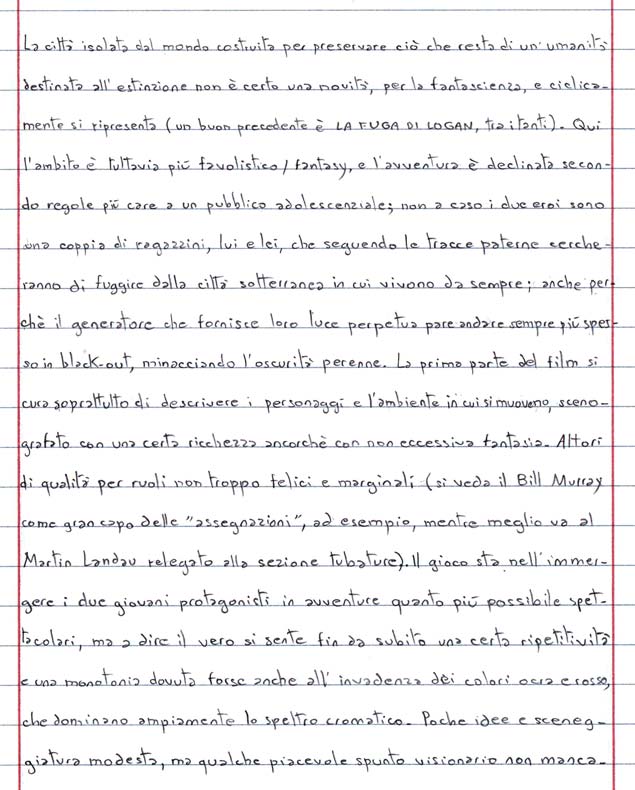 La città isolata dal mondo costruita per preservare ciò che resta di un'umanità
destinata all'estinzione non è certo una novità, per la fantascienza, e ciclica-
mente si ripresenta (un buon precedente è LA FUGA DI LOGAN, tra i tanti). Qui
l'ambito è tuttavia più favolistico/fantasy, e l'avventura è declinata secon-
do regole più care a un pubblico adolescenziale; non a caso i due eroi sono
una coppia di ragazzini, lui e lei, che seguendo le tracce paterne cerche-
ranno di fuggire dalla città sotterranea in cui vivono da sempre; anche per-
chè il generatore che fornisce loro luce perpetua pare andare sempre più spes-
so in black-out, minacciando l'oscurità perenne. La prima parte del film si
cura soprattutto di descrivere i personaggi e l'ambiente in cui si muovono, sceno-
grafato con una certa ricchezza ancorchè con non eccessiva fantasia. Attori
di qualità per ruoli non troppo felici e marginali (si veda il Bill Murray
come gran capo delle "assegnazioni", ad esempio, mentre meglio va al
Martin Landau relegato alla sezione tubature). Il gioco sta nell'immer-
gere i due giovani protagonisti in avventure quanto più possibile spet-
tacolari, ma a dire il vero si sente fin da subito una certa ripetitività
e una monotonia dovuta forse anche all'invadenza dei colori ocra e rosso,
che dominano ampiamente lo spettro cromatico. Poche idee e sceneg-
giatura modesta, ma qualche piacevole spunto visionario non manca.